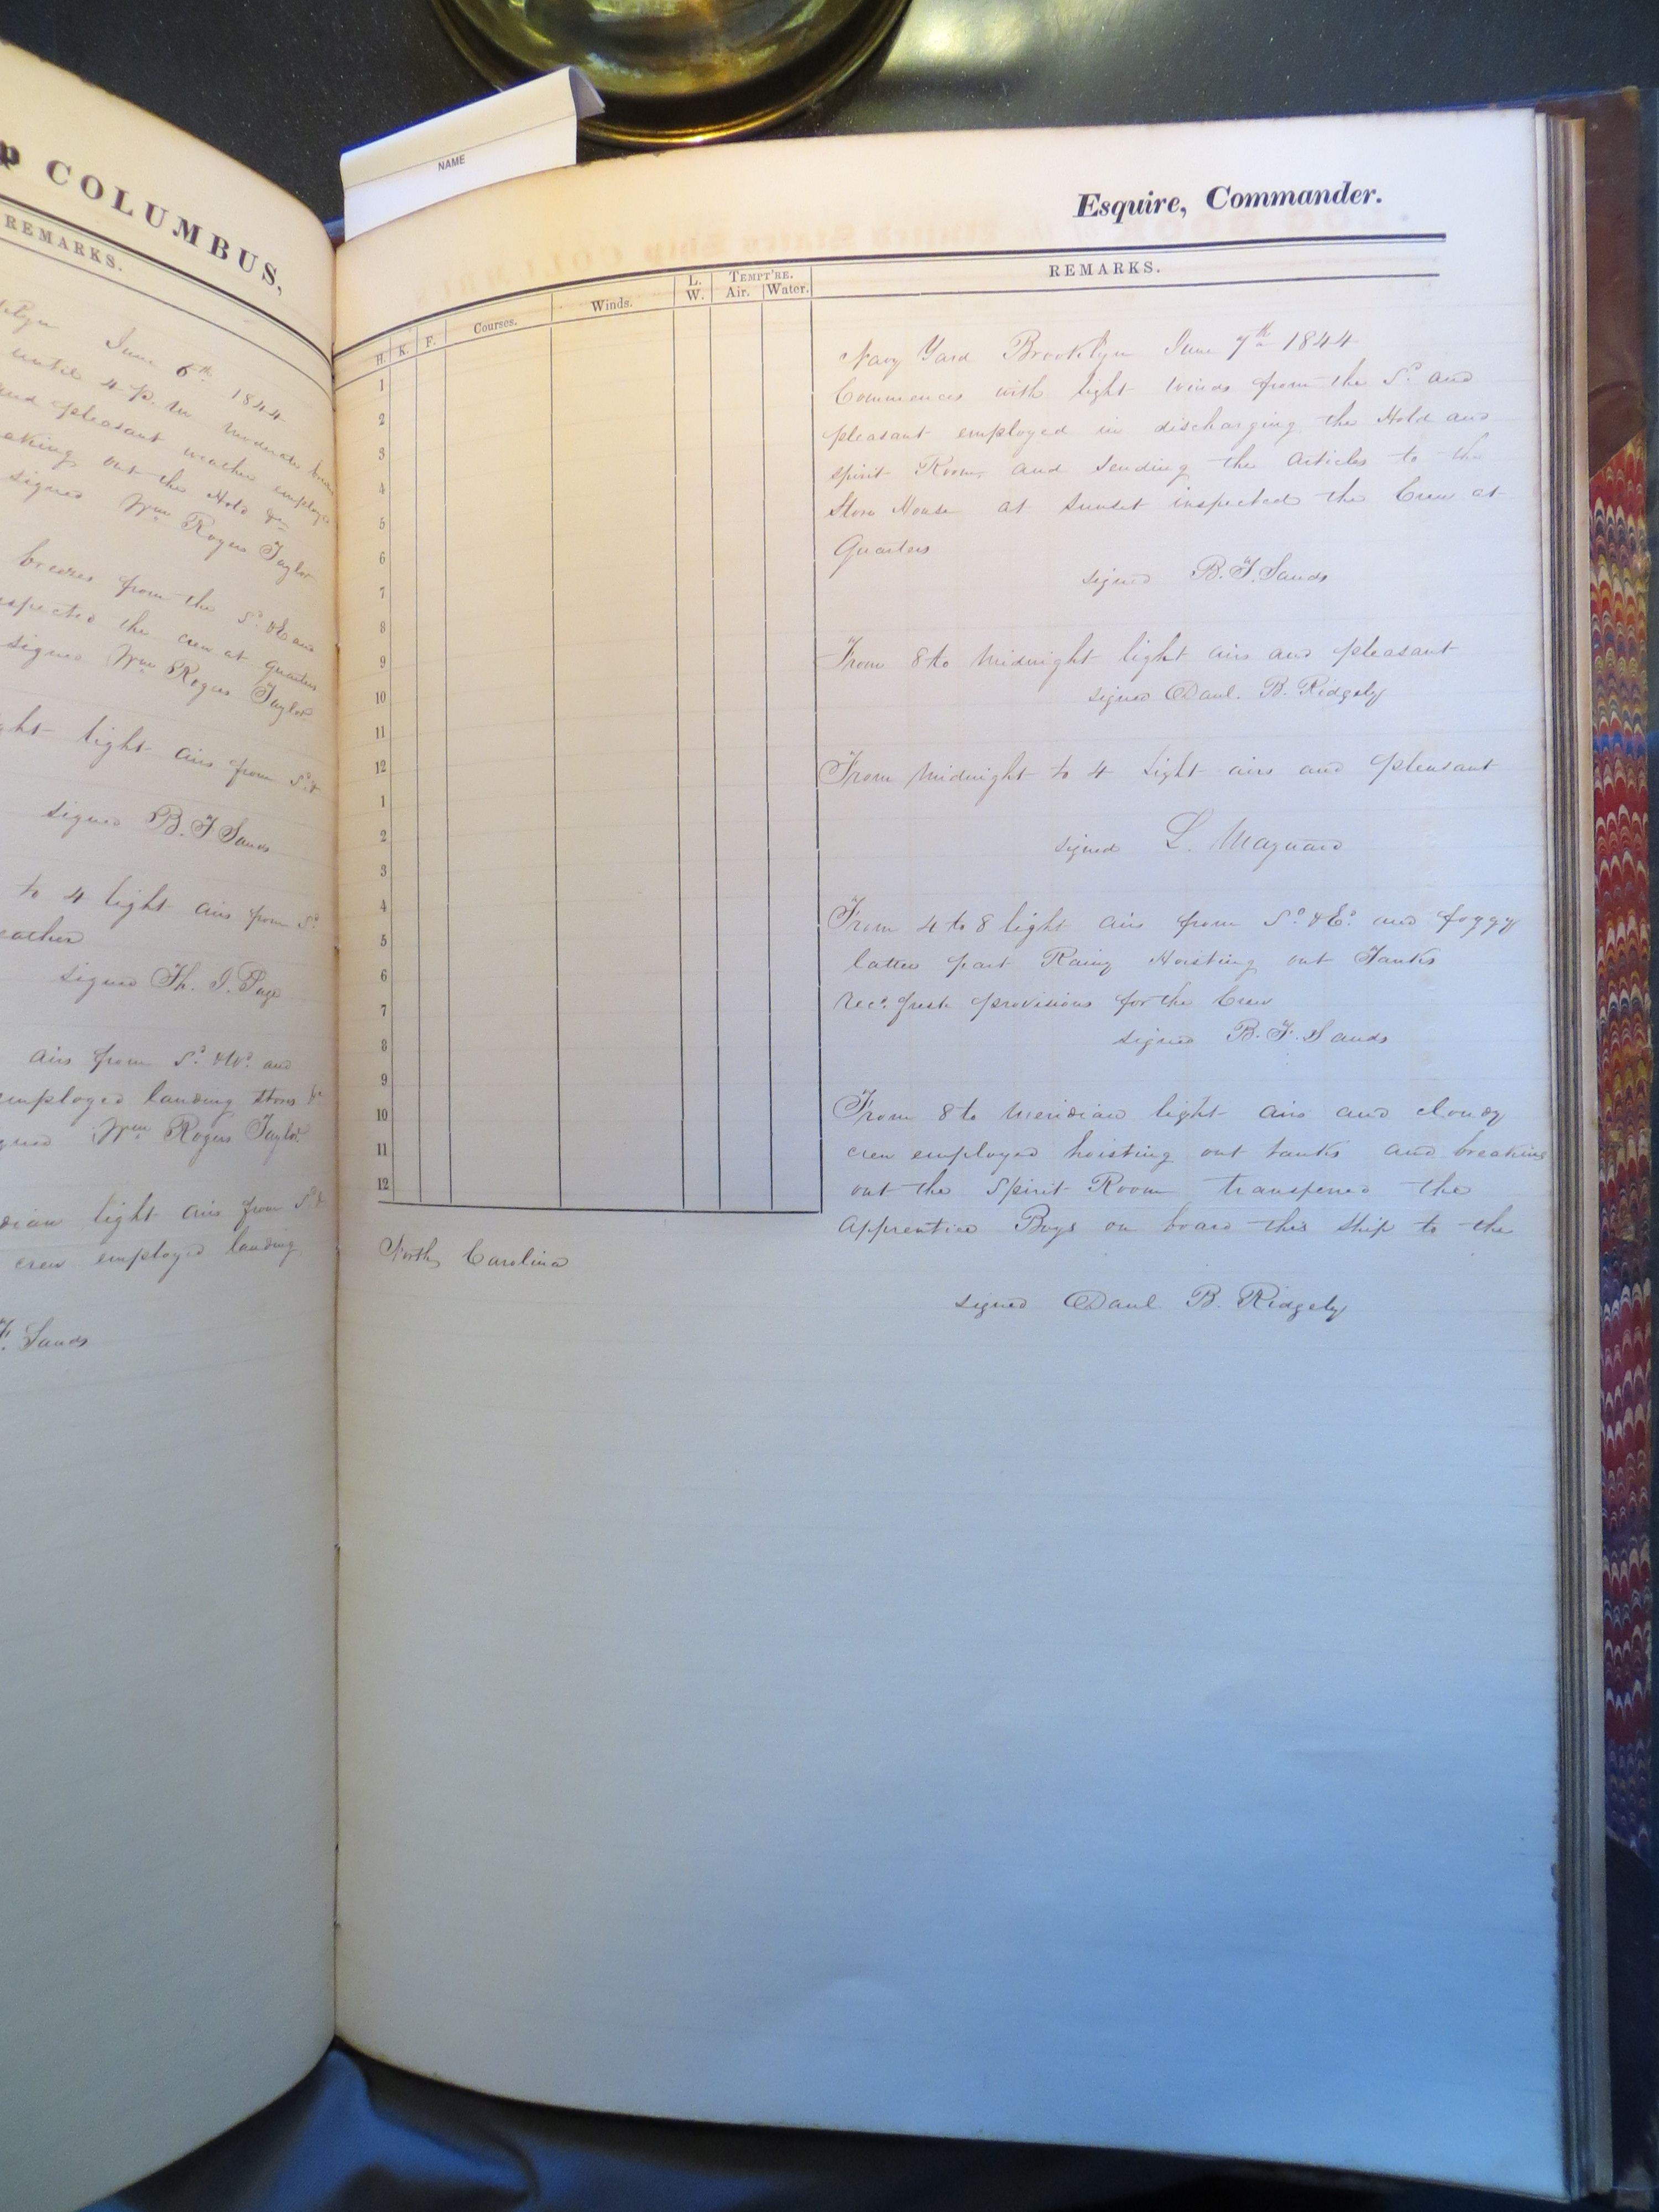 p COLUMBUS,
REMARKS.
June 6th 1844
until 4 P. M moderate
and pleasant weather employed
out the Hold &c
signed Wm Rogers Taylor
breezes from the Sd &Ed and
the crew at quarters
signed Wm Rogers Taylor
light airs from Sd &
signed B. F Sands
to 4 light airs from Sd
signed Th. J. Page
airs from Sd &Wd and
employed landing stores &c
Wm Rogers Taylor
light airs from Sd &
crew employed landing
F. Sands
NAME
Esquire, Commander.
H. K. F. Courses. Winds. L. W. TEMPT'RE. Air. Water. REMARKS.
1
2
3
4
5
6
7
8
9
10
11
12
1
2
3
4
5
6
7
8
9
10
11
12
Navy Yard Brooklyn June 7th 1844
Commences with light winds from the Sd and
pleasant employed in discharging the Hold and
spirit Room, and sending the articles to the
Store House at sunset inspected the Crew at
Quarters
signed B. F. Sands
From 8 to Midnight light airs and pleasant
signed Danl. B. Ridgely
From Midnight to 4 Light airs and pleasant
signed L. Maynard
From 4 to 8 light airs from Sd &Ed and foggy
latter part Rainy Hoisting out Tanks
recd fresh provisions for the Crew
signed B. F. Sands
From 8 to Meridian light airs and cloudy
crew employed hoisting out tanks and breaking
out the Spirit Room transferred the
Apprentice Boys on board this Ship to the
North Carolina
signed Danl B. Ridgely